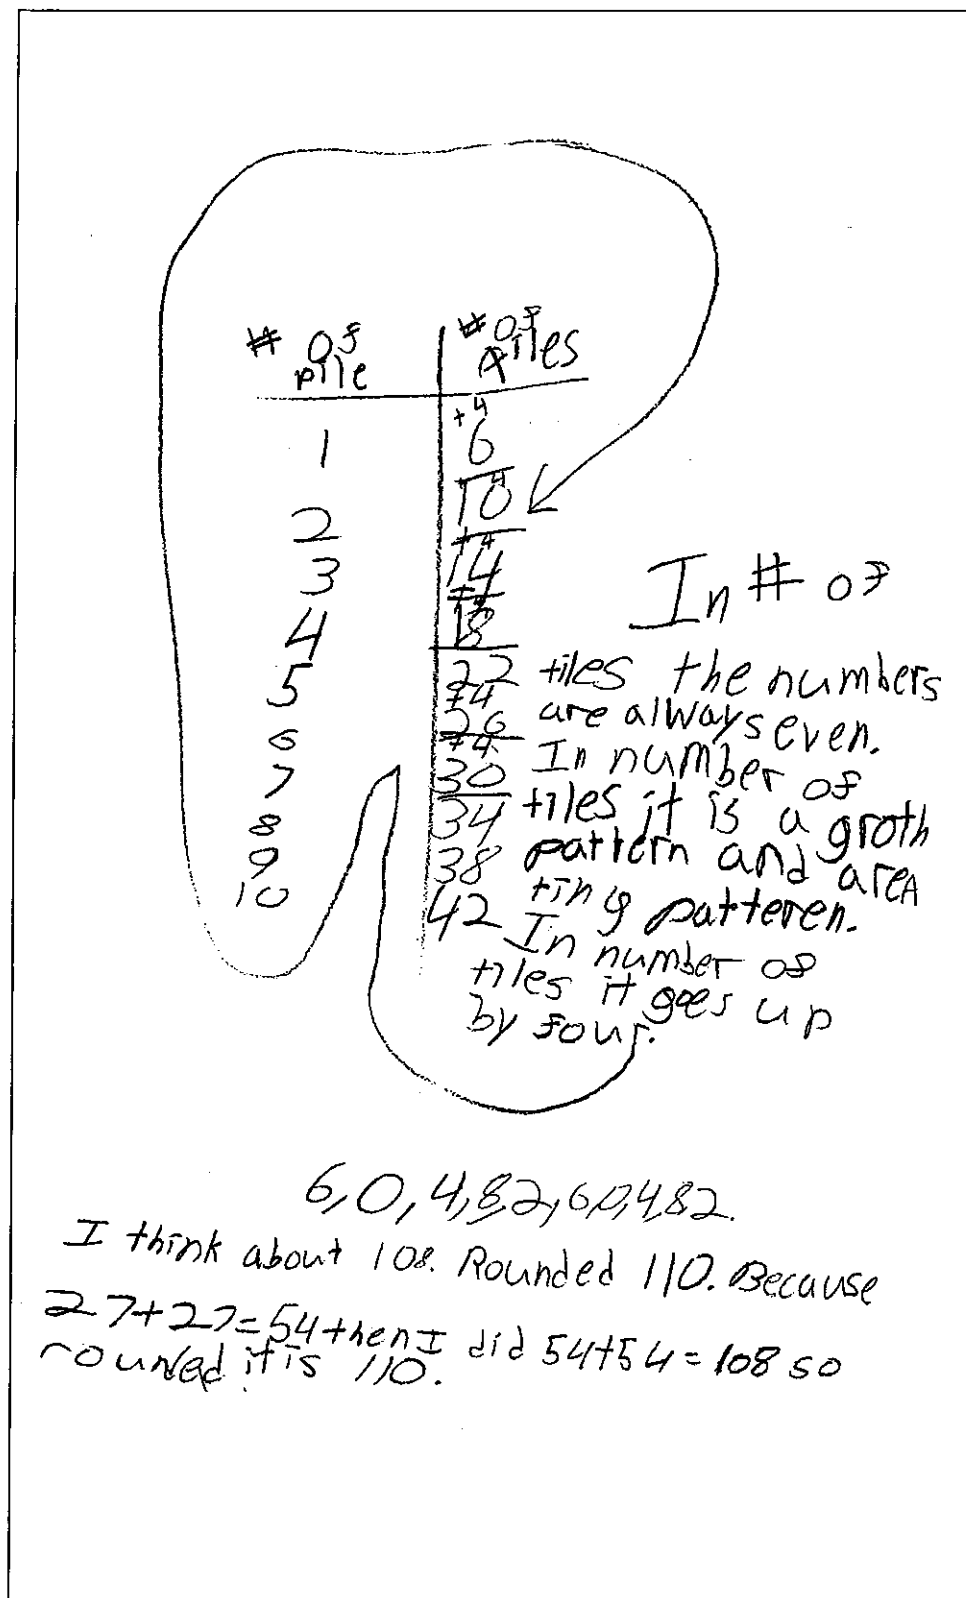 # of pile | # of tiles
+4
1 | 6
+4
2 | 10
+4
3 | 14
+4
4 | 18
5 | 22
+4
6 | 26
+4
7 | 30
8 | 34
9 | 38
10 | 42
In # of
tiles the numbers
are always even.
In number of
tiles it is a groth
pattern and area
ting patteren.
In number of
tiles it goes up
by four.
6,0,4,8,2,6,0,4,8 2.
I think about 108. Rounded 110. Because
27+27=54 then I did 54+54=108 so
rounded it is 110.